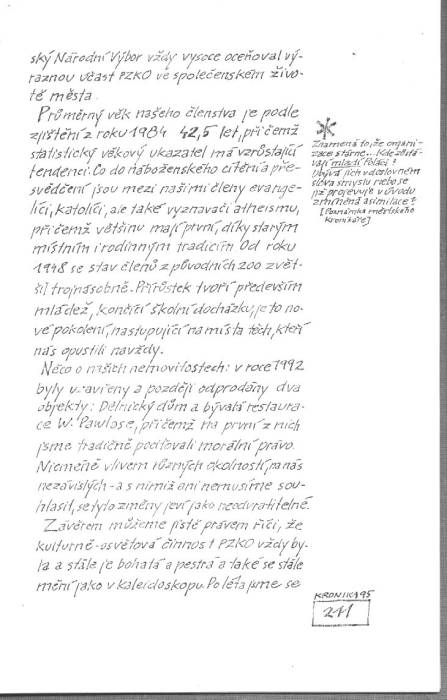 ský Národní Výbor vždy vysoce oceňoval vý-
raznou účast PZKO ve společenském živo-
tě města.
Průměrný věk našeho členstva je podle
zjištění z roku 1984 42,5 let, při čemž
statistický věkový ukazatel má vzrůstající
tendenci. Co do náboženského cítění a pře-
svědčení jsou mezi našimi členy evange-
líci, katolíci, ale také vyznavači atheismu,
při čemž většinu mají první, díky starým
místním i rodinným tradicím. Od roku
1948 se stav členů z původních 200 zvět-
šil trojnásobně. Přírůstek tvoří především
mládež, končící školní docházku, je to no-
vé pokolení, nastupující na místa těch, kteří
nás opustili navždy.
Něco o našich nemovitostech: v roce 1992
byly uzavřeny a později odprodány dva
objekty: Dělnický dům a bývalá restaura-
ce W. Pawlase, při čemž na první z nich
jsme tradičně pociťovali morální právo.
Nicméně vlivem různých okolností, na nás
nezávislých - a s nimiž ani nemusíme sou-
hlasit, se tyto změny jeví jako neodvratitelné.
Závěrem můžeme jistě právem říci, že
kulturně-osvětová činnost PZKO vždy by-
la a stále je bohatá a pestrá a také se stále
mění jako v kaleidoskopu. Po léta jsme se
*
Znamená to, že organi-
zace stárne... Kde zůstá-
vají mladí Poláci?
Ubývá jich v doslovném
slova smyslu nebo se
již projevuje v úvodu
zmíněná asimilace?
[Poznámka městského
kronikáře]
KRONIKA 95
211